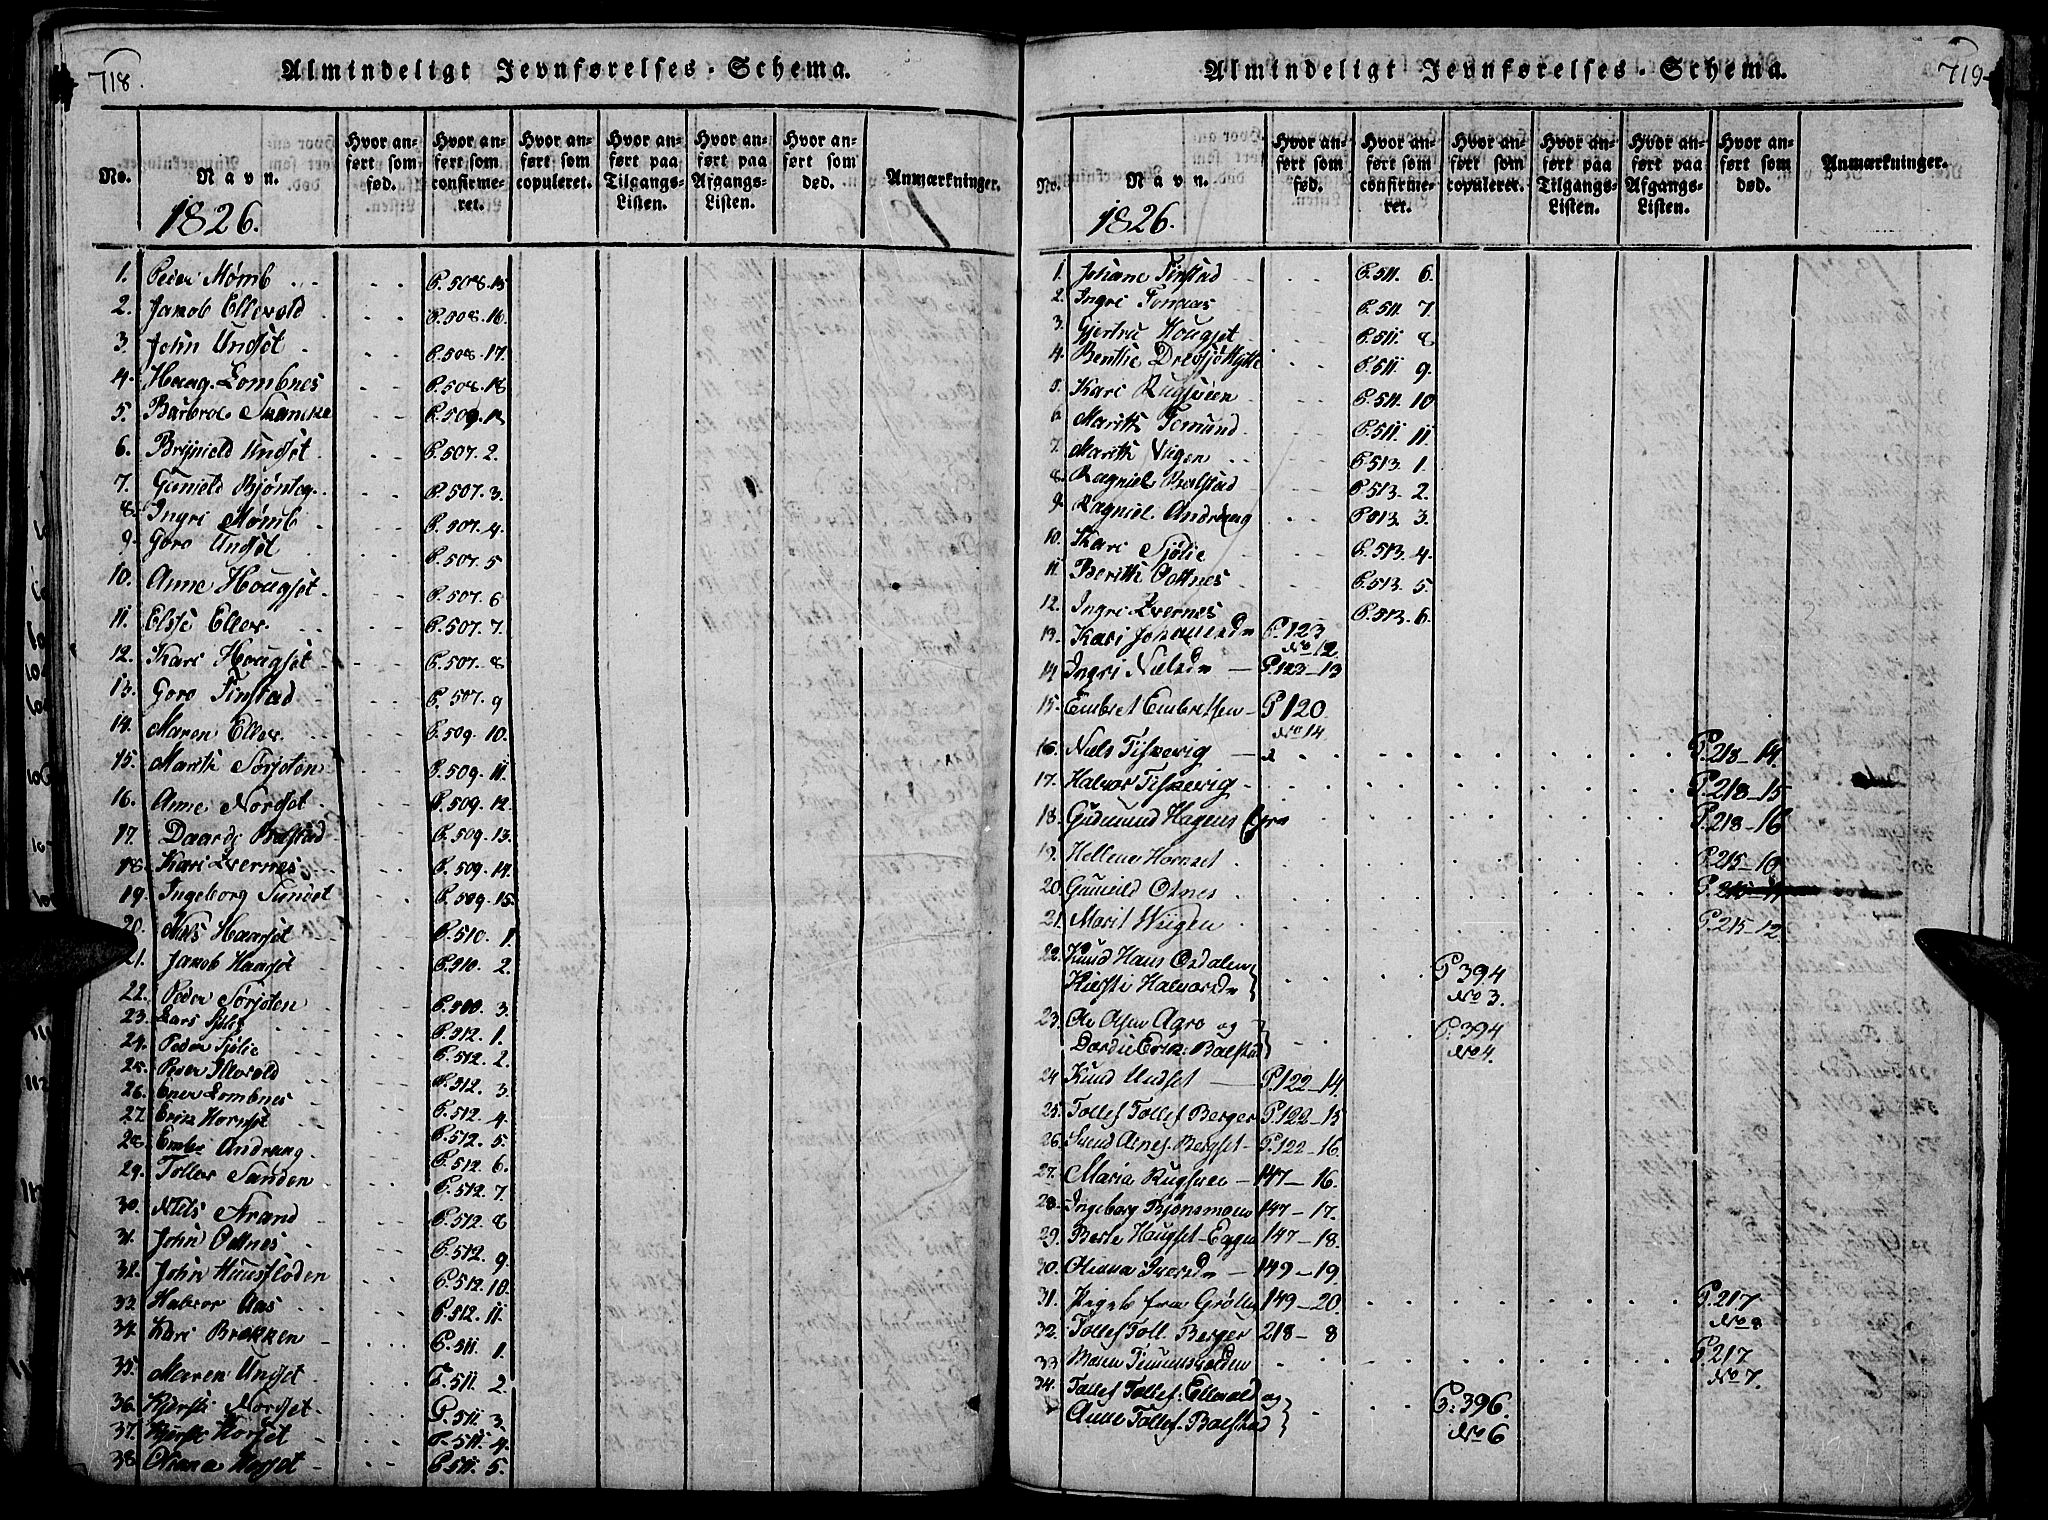 718.
Almindeligt Jevnførelses-Schema.
No.
Navn.
Hvor anført som fød.
Hvor anført som confirmeret.
Hvor anført som copuleret.
Hvor anført paa Tilgangs-Listen.
Hvor anført paa Afgangs-Listen.
Hvor anført som død.
Anmærkninger.
1826.
1. Peder Mømb P. 508. 15
2. Jakob Ellevold P. 508. 16.
3. John Undset P. 508. 17.
4. Haag. Lombnes P. 508. 18
5. Barbroe Skancke P. 509. 1
6. Brynield Undset P. 507. 2.
7. Gunield Bjönteg. P. 507. 3.
8. Ingri Mømb P. 507. 4.
9. Goro Undset P. 507. 5
10. Anne Hougset P. 507. 6
11. Elsie Ellev. P. 507. 7.
12. Kari Hougset P. 507. 8
13. Goro Finstad P. 507. 9
14. Maren Ellev. P. 509. 10.
15. Marith Sorjoten P. 509. 11.
16. Anne Nordset P. 509. 12.
17. Daarde Bolstad P. 509. 13.
18. Kari Evernes P. 509. 14.
19. Ingeborg Sundet P. 509. 15.
20. Niels Haarset P. 510. 1.
21. Jakob Haarset P. 510. 2.
22. Peder Sørjoten 3.
23. Lars Sjølie P. 512. 1.
24. Peder Sjølie P. 512. 2.
25. Peder Ellevold P. 512. 3.
26. Ener Lombnes P. 512. 4.
27. Erik Hornset P. 512. 5.
28. Embr. Andraag. P. 512. 6.
29. Tollev Sanden P. 512. 7.
30. Niels Strand P. 512. 8
31. John Odtnes P. 512. 9.
32. John Huusfloden P. 512. 10.
33. Halvor Aas P. 512. 11.
34. Kari Brækken P. 511. 1.
35. Maren Undset P. 511. 2.
36. Kjersti Nordset P. 511. 3.
37. Kjersti Horset P. 511. 4.
38. Oliana Horset P. 511. 5.
719
Almindeligt Jevnførelses-Schema.
No.
Navn.
Hvor anført som fød.
Hvor anført som confirmeret.
Hvor anført som copuleret.
Hvor anført paa Tilgangs-Listen.
Hvor anført paa Afgangs-Listen.
Hvor anført som død.
Anmærkninger.
1826.
1. Johane Finstad P. 511. 6.
2. Ingri Tomaas P. 511. 7.
3. Gjertru Hougset P. 511. 8
4. Benthe DrevsjøHytte P. 511. 9.
5. Kari Rugsveen P. 511. 10
6. Marith Fomund P. 511. 11
7. Marith Viigen P. 513. 1.
8. Ragniel Bolstad P. 513. 2.
9. Ragniel Andraag P. 513. 3.
10. Kari Sjølie P. 513. 4.
11. Berith Odtnes P. 513. 5.
12. Ingri Evernes P. 513. 6.
13. Kari Johannesdn P. 123 No 12.
14. Ingri Nielsdn P. 123 – 13
15. Embret Embretsen P 120 No 14
16. Niels Tyskevig P. 218 – 14
17. Halvor Tyskevig P. 218 – 15
18. Gudmund Hagens P. 218 – 16
19. Hellene Hornset P. 215 – 10
20. Gunield Otnes P.
21. Marit Wigen P. 215 – 12
22. Knud Hans Osdalen
Kirsti Halvorsdn P 394 No 3.
23. Ole Olsen Agro og
Dordi Erik: Bolstad P. 394 No 4.
24. Knud Undset P. 122 – 14.
25. Tollef Tollefs. Berger P. 122 – 15
26. Svend Arnes. Bergset P. 122 – 16.
27. Maria Rugsvee 147 – 16.
28. Ingeborg Bjønsmoen 147 – 17.
29. Berte Haugset-Eggen 147 – 18.
30. Oliana Iversdn 149 – 19.
31. Pigeb. fra Grøtte 149 – 20. P. 217 No 8
32. Tollef Toll. Berger 218 – 8
33. Moren P. 217 No 7.
34. Tollef Tollefs. Ellevold og
Anne Tollefs. Bolstad P. 396. No 6